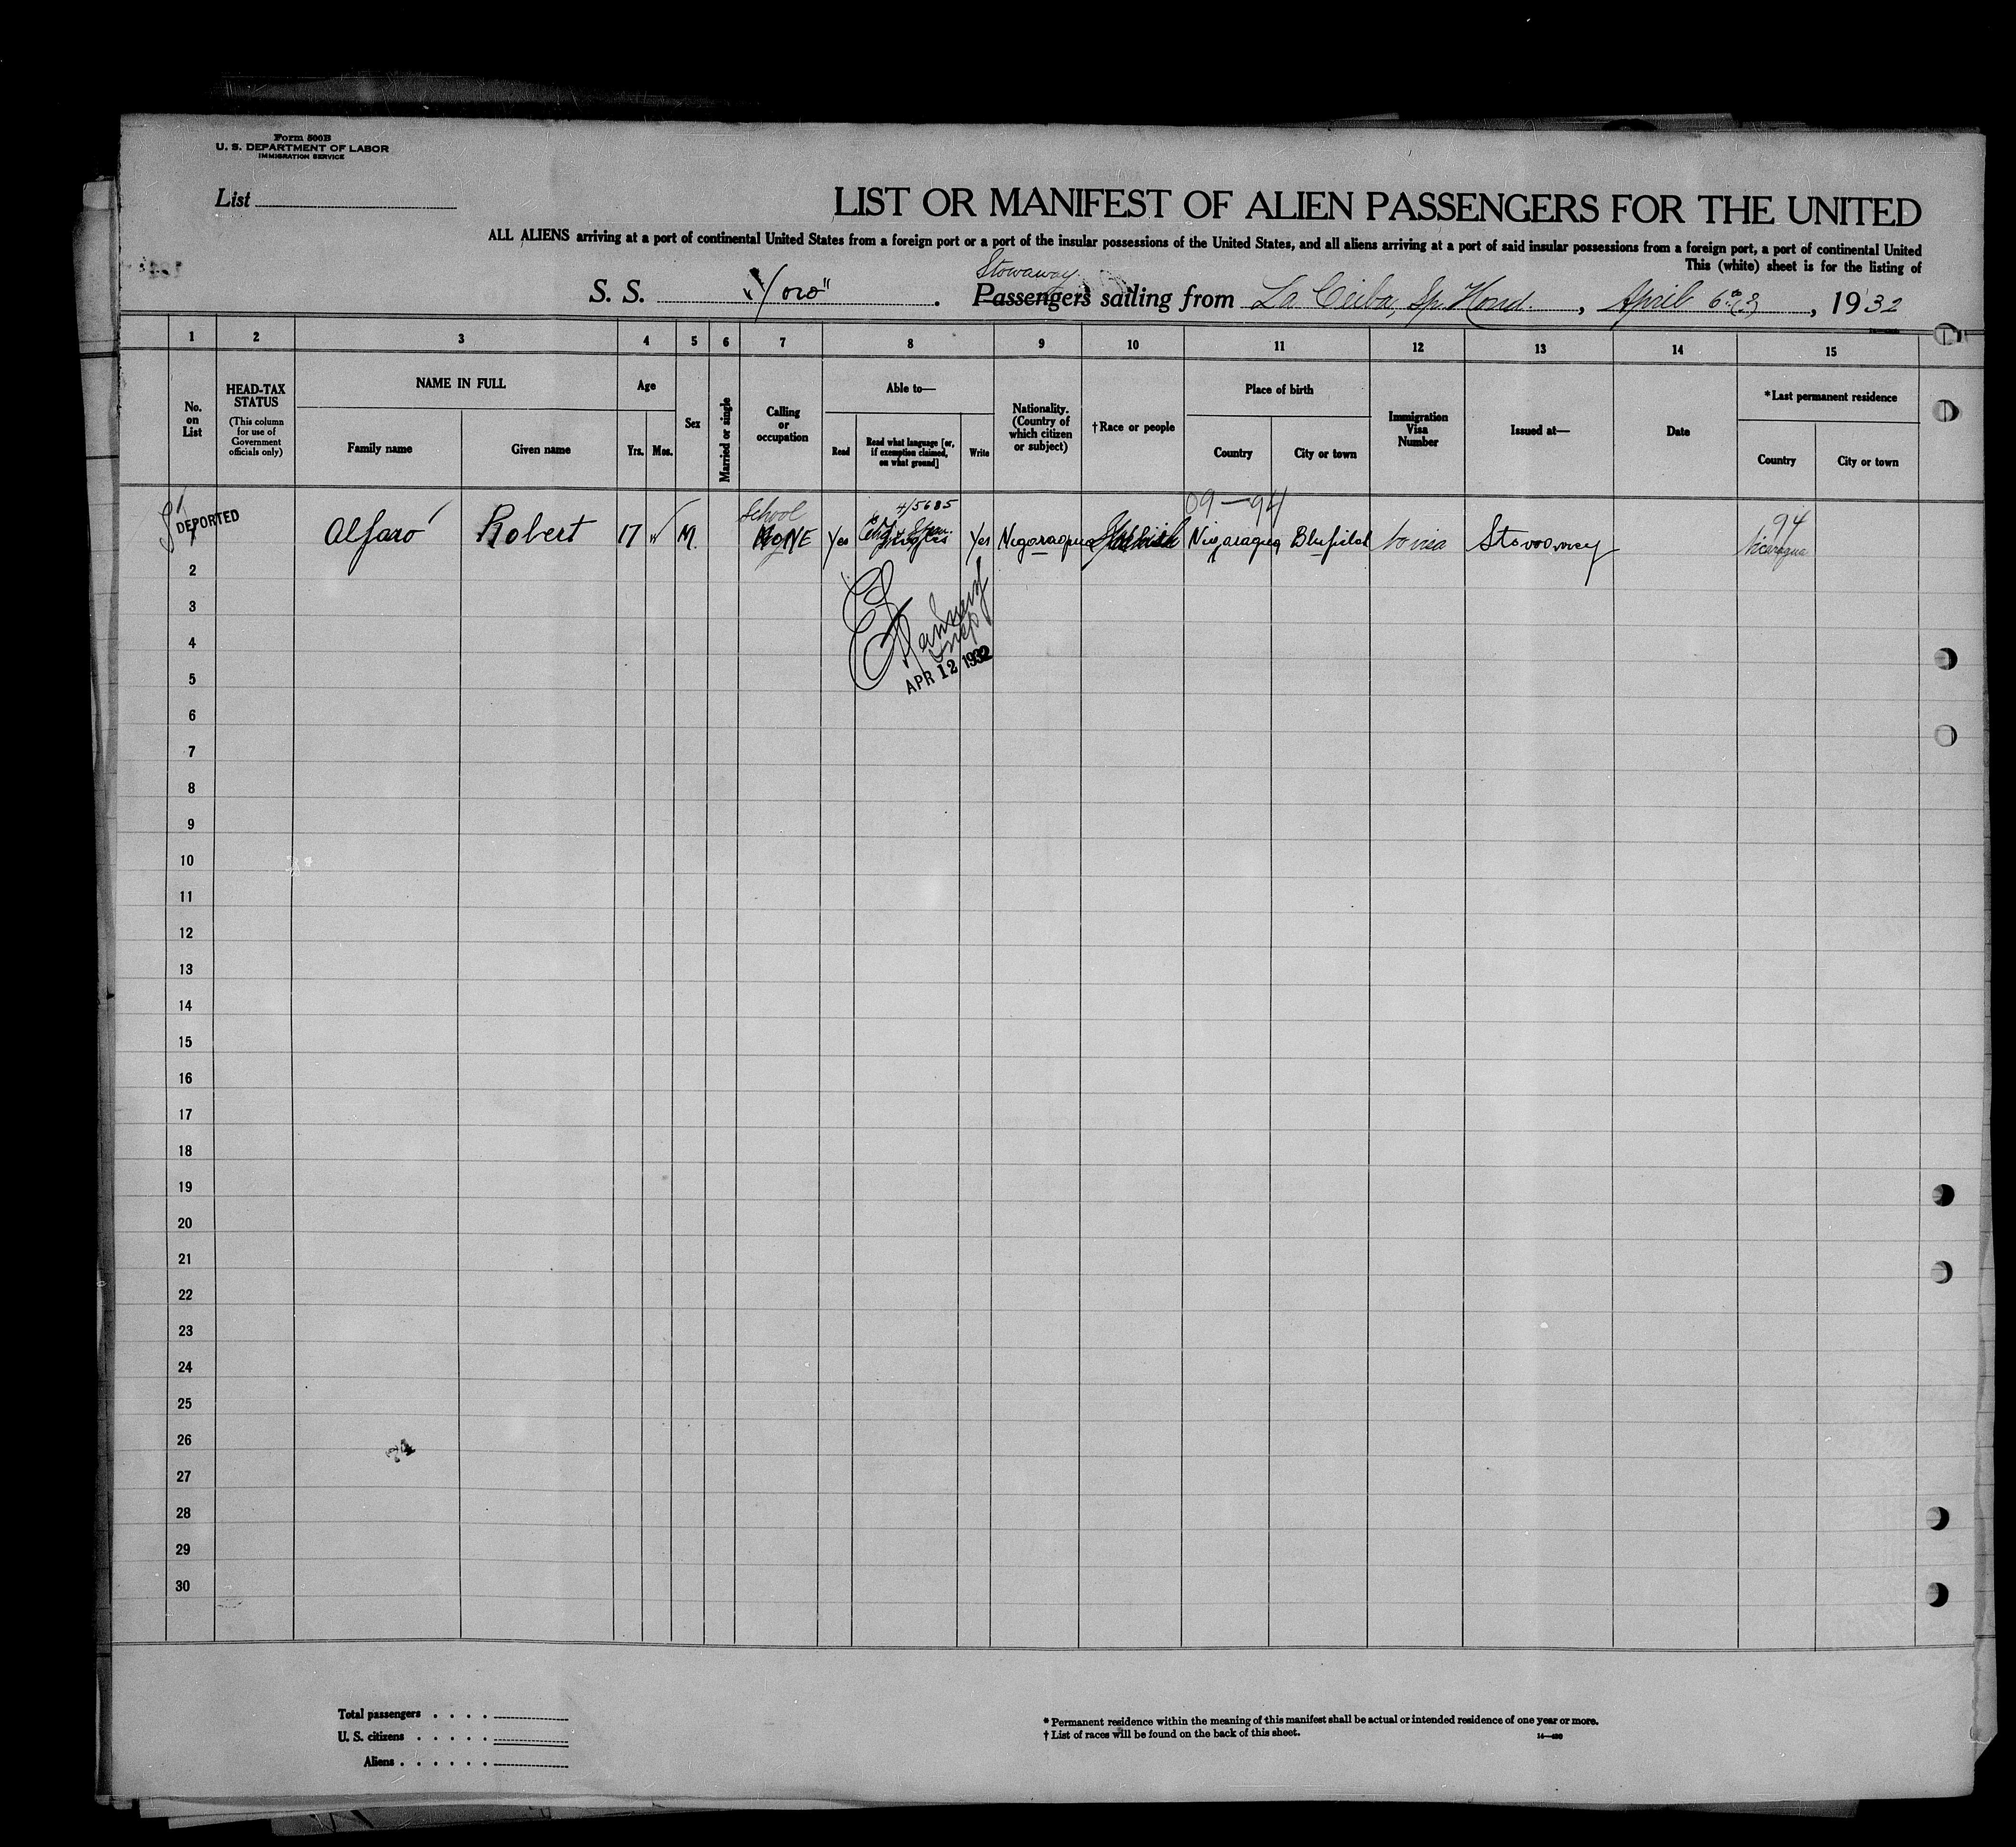 Form 500B
U. S. DEPARTMENT OF LABOR
IMMIGRATION SERVICE
List
LIST OR MANIFEST OF ALIEN PASSENGERS FOR THE UNITED
ALL ALIENS arriving at a port of continental United States from a foreign port or a port of the insular possessions of the United States, and all aliens arriving at a port of said insular possessions from a foreign port, a port of continental United
This (white) sheet is for the listing of
Stowaway
S. S. "Yoro" . Passengers sailing from La Ceiba, Sp. Hond. , April 6 , 1932
1 2 3 4 5 6 7 8 9 10 11 12 13 14 15
No. on List
HEAD-TAX STATUS
(This column for use of Government officials only)
NAME IN FULL
Family name
Given name
Age
Yrs.
Mos.
Sex
Married or single
Calling or occupation
Able to—
Read
Read what language [or, if exemption claimed, on what ground]
Write
Nationality. (Country of which citizen or subject)
†Race or people
Place of birth
Country
City or town
Immigration Visa Number
Issued at—
Date
*Last permanent residence
Country
City or town
School 4/5685 09—94 94
DEPORTED
1 Alfaro Robert 17 M. NONE Yes Yes Nigaragua Nigaragua Blufield no visa Stowoway Nicaragua
2
3
4
APR 12 1932
5
6
7
8
9
10
11
12
13
14
15
16
17
18
19
20
21
22
23
24
25
26
27
28
29
30
Total passengers
U. S. citizens
Aliens
* Permanent residence within the meaning of this manifest shall be actual or intended residence of one year or more.
† List of races will be found on the back of this sheet.